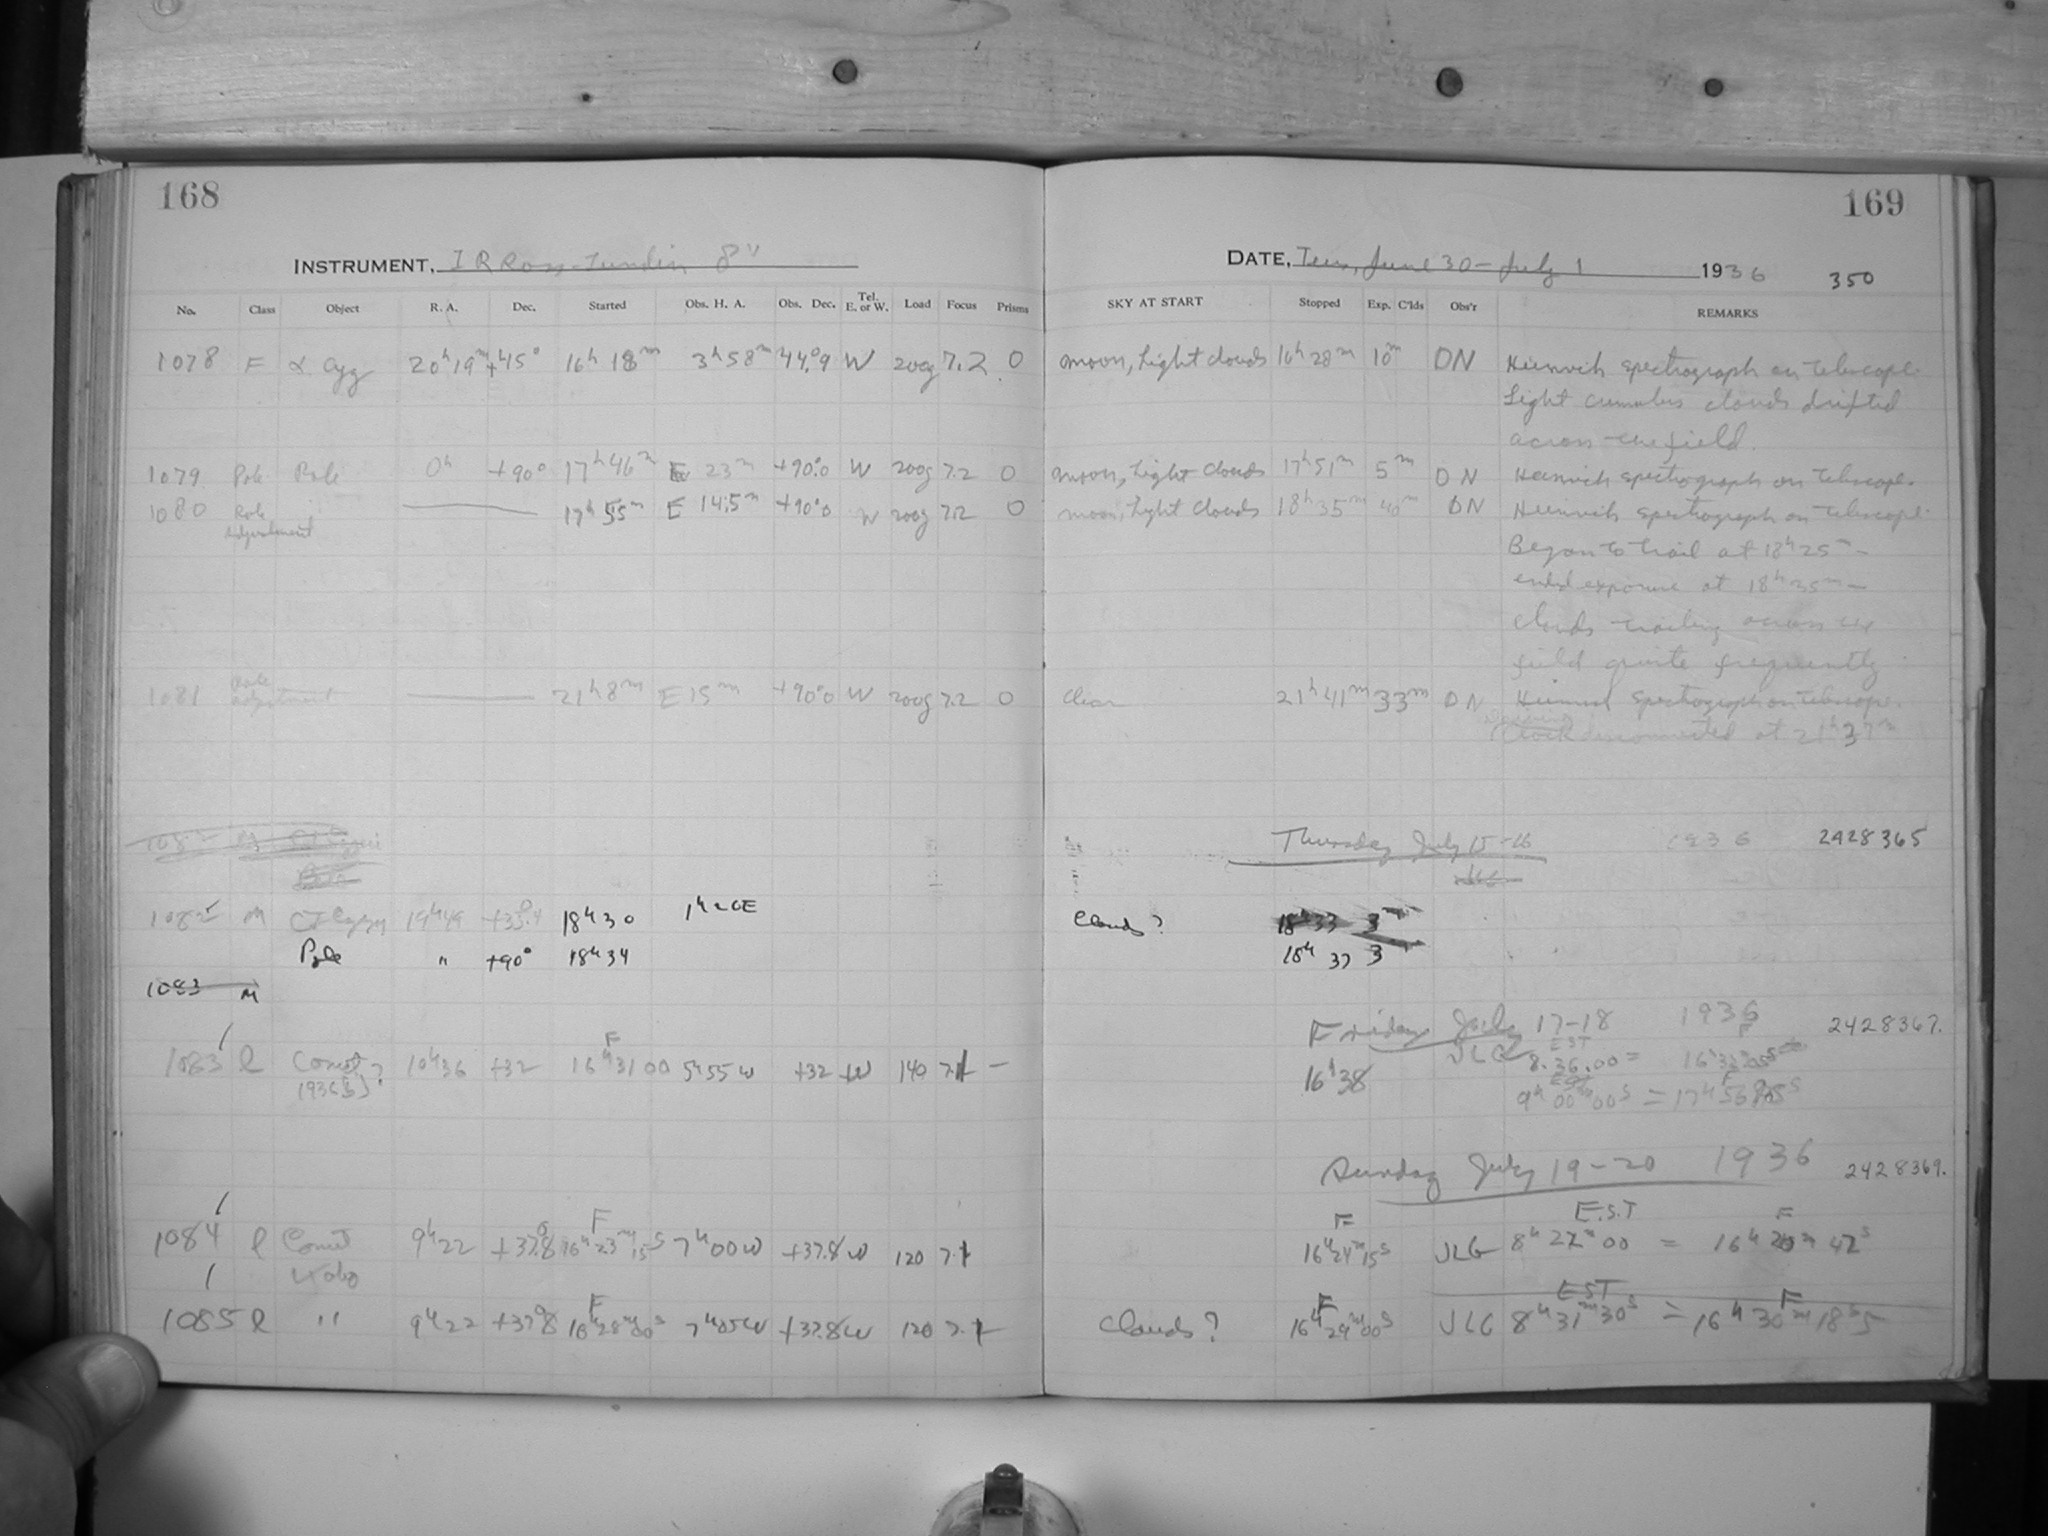 168
169
INSTRUMENT, I R Ross-Lundin 8"
DATE, Tues, June 30 - July 1 1936 350
No. Class Object R. A. Dec. Started Obs. H. A. Obs. Dec. Tel. E. or W. Load Focus Prisms SKY AT START Stopped Exp. C'lds Obs'r REMARKS
1078 F α Cyg 20h19m +45° 16h 18m 3h58m 44.°9 W 200g 7.2 0 moon, light clouds 16h 28m 10m DN Heinrich spectrograph on telescope.
Light cumulus clouds drifted
across the field.
1079 Pole Pole 0h +90° 17h46m E 23m +90°.0 W 200g 7.2 0 moon, light clouds 17h51m 5m DN Heinrich spectrograph on telescope.
1080 Pole Adjustment 17h55m E 14.5m +90°.0 W 200g 7.2 0 moon, light clouds 18h35m 40m DN Heinrich spectrograph on telescope.
Began to trail at 18h25m -
ended exposure at 18h35m -
clouds trailing across the
field quite frequently
1081 Pole adjustment 21h8m E 15m +90°.0 W 200g 7.2 0 Clear 21h41m 33m DN spectrograph on telescope.
Clock disconnected at 21h37m
Thursday July 15-16 1936 2428365
1082 M 19h49 18h30 Clouds? 18h33 3m
Pole " +90° 18h34 18h 37 3
1083 M
Friday July 17-18 1936 2428367.
1083 l Comet? (1936b) 10h36 +32 16h31 00 5h55W +32 W 140 7.1 - 16h38 JLG 8.36.00 =
9h 00m00s =
Sunday July 19-20 1936 2428369.
E.S.T F
1084 l Comet 9h22 +37.8 16h23m15s 7h00W +37.8 W 120 7.1 16h24m15s JLG 8h 22m 00 = 16h 20m 42s
EST F
1085 l " 9h22 +37.8 16h28m00s 7h05W +37.8 W 120 7.1 - Clouds? 16h29m00s JLG 8h 31m 30s = 16h 30m 18s5